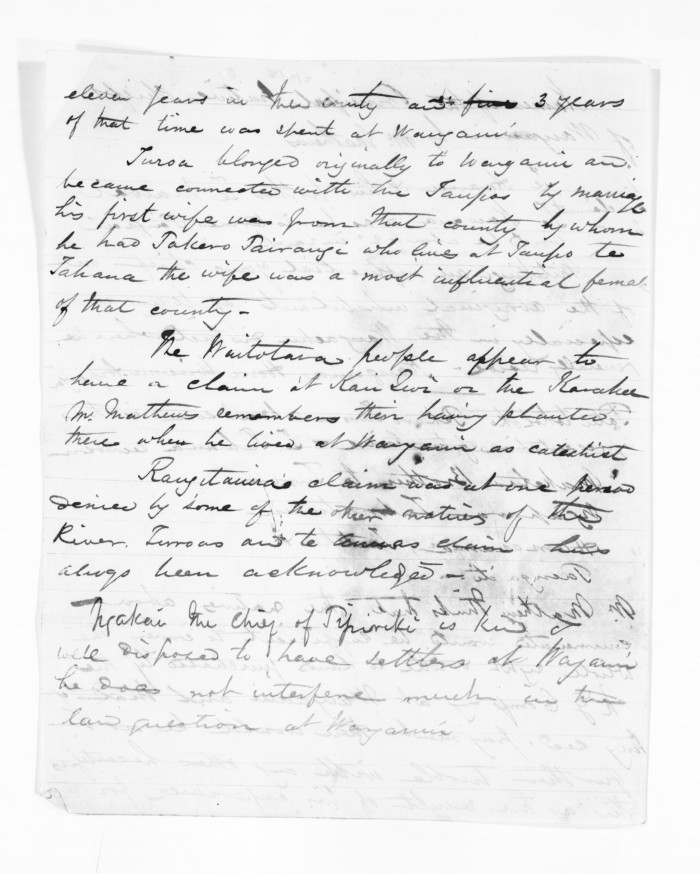 eleven years in the county and five 3 years
of that time was spent at Wanganui
Turoa blonged originally to Wanganui an
became connected with the Taupos by marriage
his first wife was from that county by whom
he had Tairangi who lives at Taupo te
Tahana the wife was a most influential femal
of that county -
The Waitotara people appear to
have a claim at Kai Iwi or the
Mr. Mathews remembers their having planted
there when he lived at Wanganui as catechist
Rangitauira's claim was at one period
denied by some of the other natives of the
River. Turoas and te claim has
always been acknowledged -
Ngakai the Chief of Pipiriki is kind &
well disposed to have settlers at Wanganui
he does not interfere much in the
land question at Wanganui